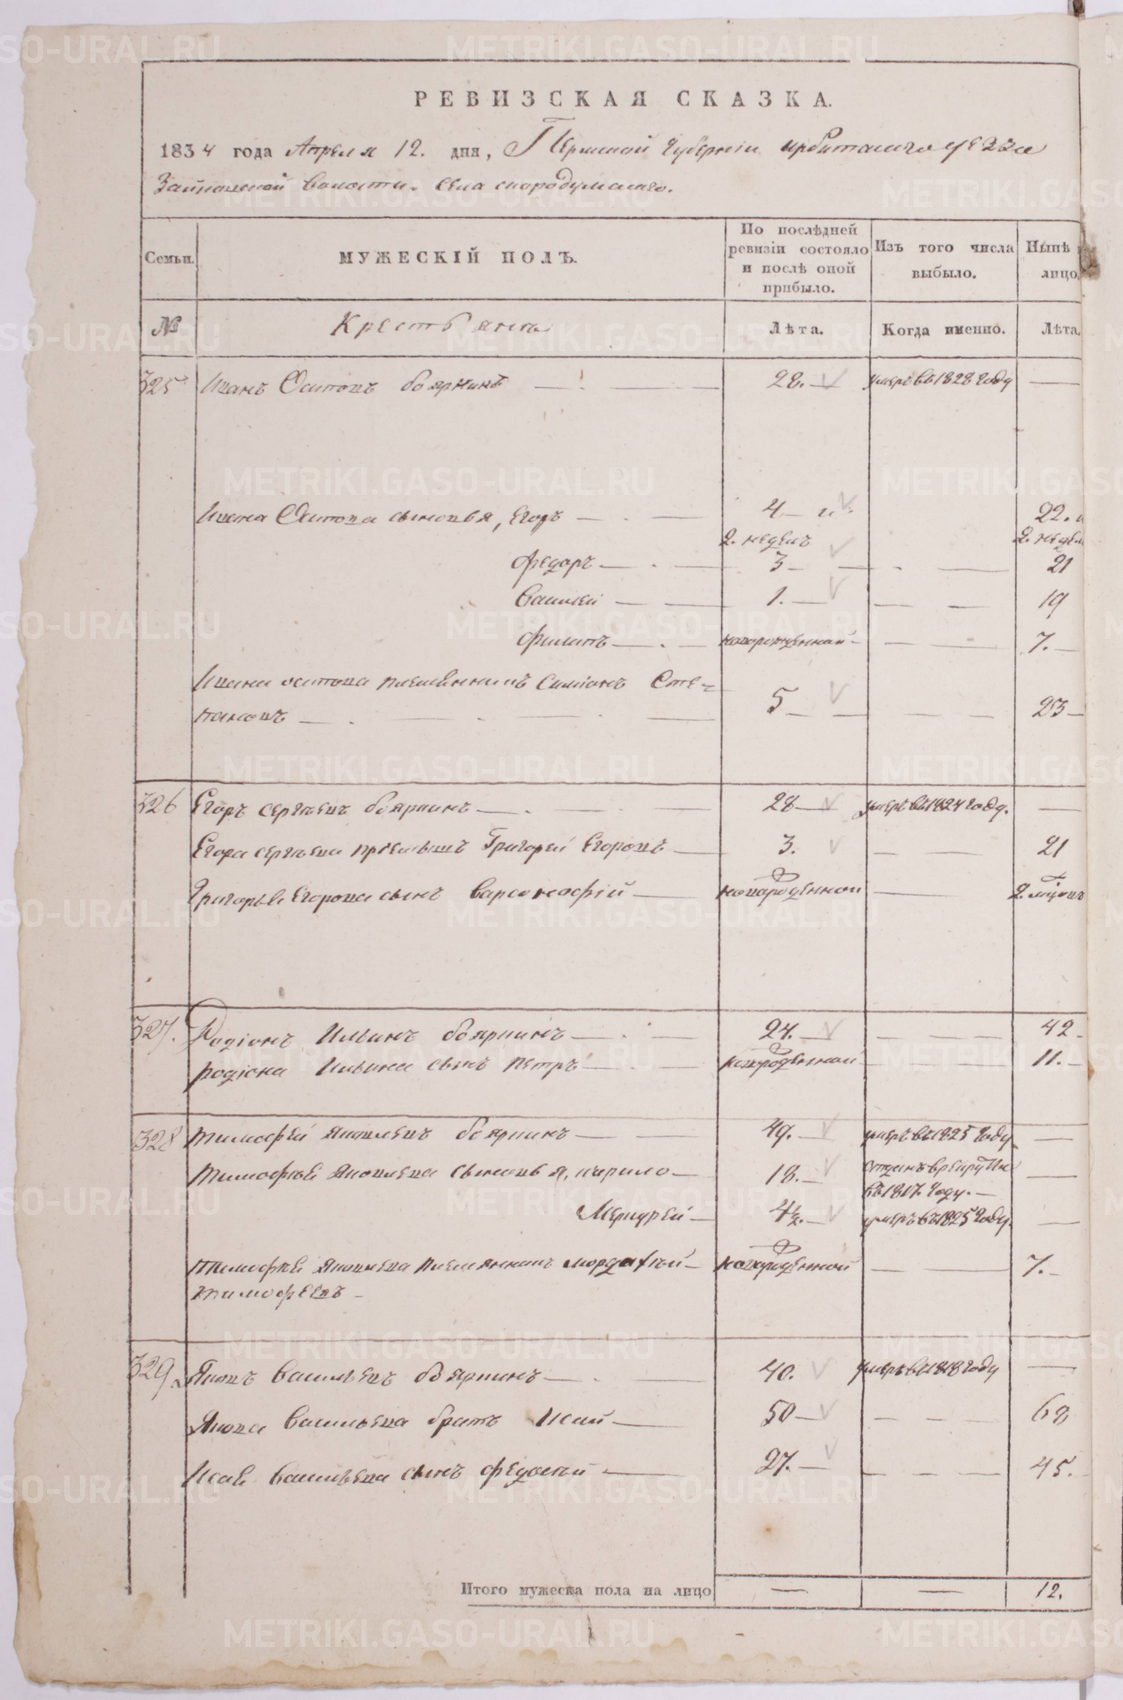 РЕВИЗСКАЯ СКАЗКА.
1834 года Апреля 12. дня, Пермской Губернiи Ирбитскаго уезда
волости. села скородумскаго.
Семьи. МУЖЕСКIЙ ПОЛЪ. По послѣдней ревизiи состояло и послѣ оной прибыло. Изъ того числа выбыло. Нынѣ лицо
№ Крестьянъ Лѣта. Когда именно. Лѣта.
325 Иванъ Осиповъ бояркинъ 28. умеръ въ 1828 году
Ивана Осипова сыновья, Егоръ 4 и 2. недель 22. и 2. недел
Федоръ 3 21
Василей 1. 19
Филипъ новорожденной 7.
Ивана осипова племянникъ Симiонъ Сте=
пановъ 5 23
326 Егоръ сергѣевъ бояркинъ 28 умеръ въ 1824 году.
Егора сергѣева Григорей Егоровъ 3. 21
Григорья Егорова сынъ Варсонофiй новорожденной 2.
327. Родiонъ Ильинъ бояркинъ 24. 42
родiона Ильина сынъ петръ новорожденной 11.
328 тимофей яковлевъ бояркинъ 49. умеръ въ 1825 году
тимофея яковлева сыновья, кирило 18. отданъ в рекруты
въ 1817. году.
Меркурей 4½. умеръ въ 1825 году
тимофея яковлева племянникъ мордарей новорожденной 7.
тимофеевъ
329. Яковъ васильевъ бояркинъ 40. умеръ въ 1818 году
Якова васильева братъ Исай 50 68
Исая васильева сынъ федосей 27. 45.
Итого мужеска пола на лицо 12.
METRIKI.GASO-URAL.RU